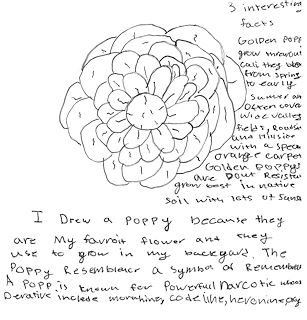 3 interesting
facts
Golden popp
grow throuou
cali they bloo
from spring
to early
summer an
often cover
wide valley
fields,
and
with a spec
orange carpet
Golden poppys
are Dout Resisten
grow best in native
soil with lots of sand
I Drew a poppy because they
are My favroit flower and they
use to grow in my backyard. The
Poppy Resembler a symbol of Remember
A Popp is known for Powerfull Narcotic whoes
Derative include morphing, codeline, heronineorg